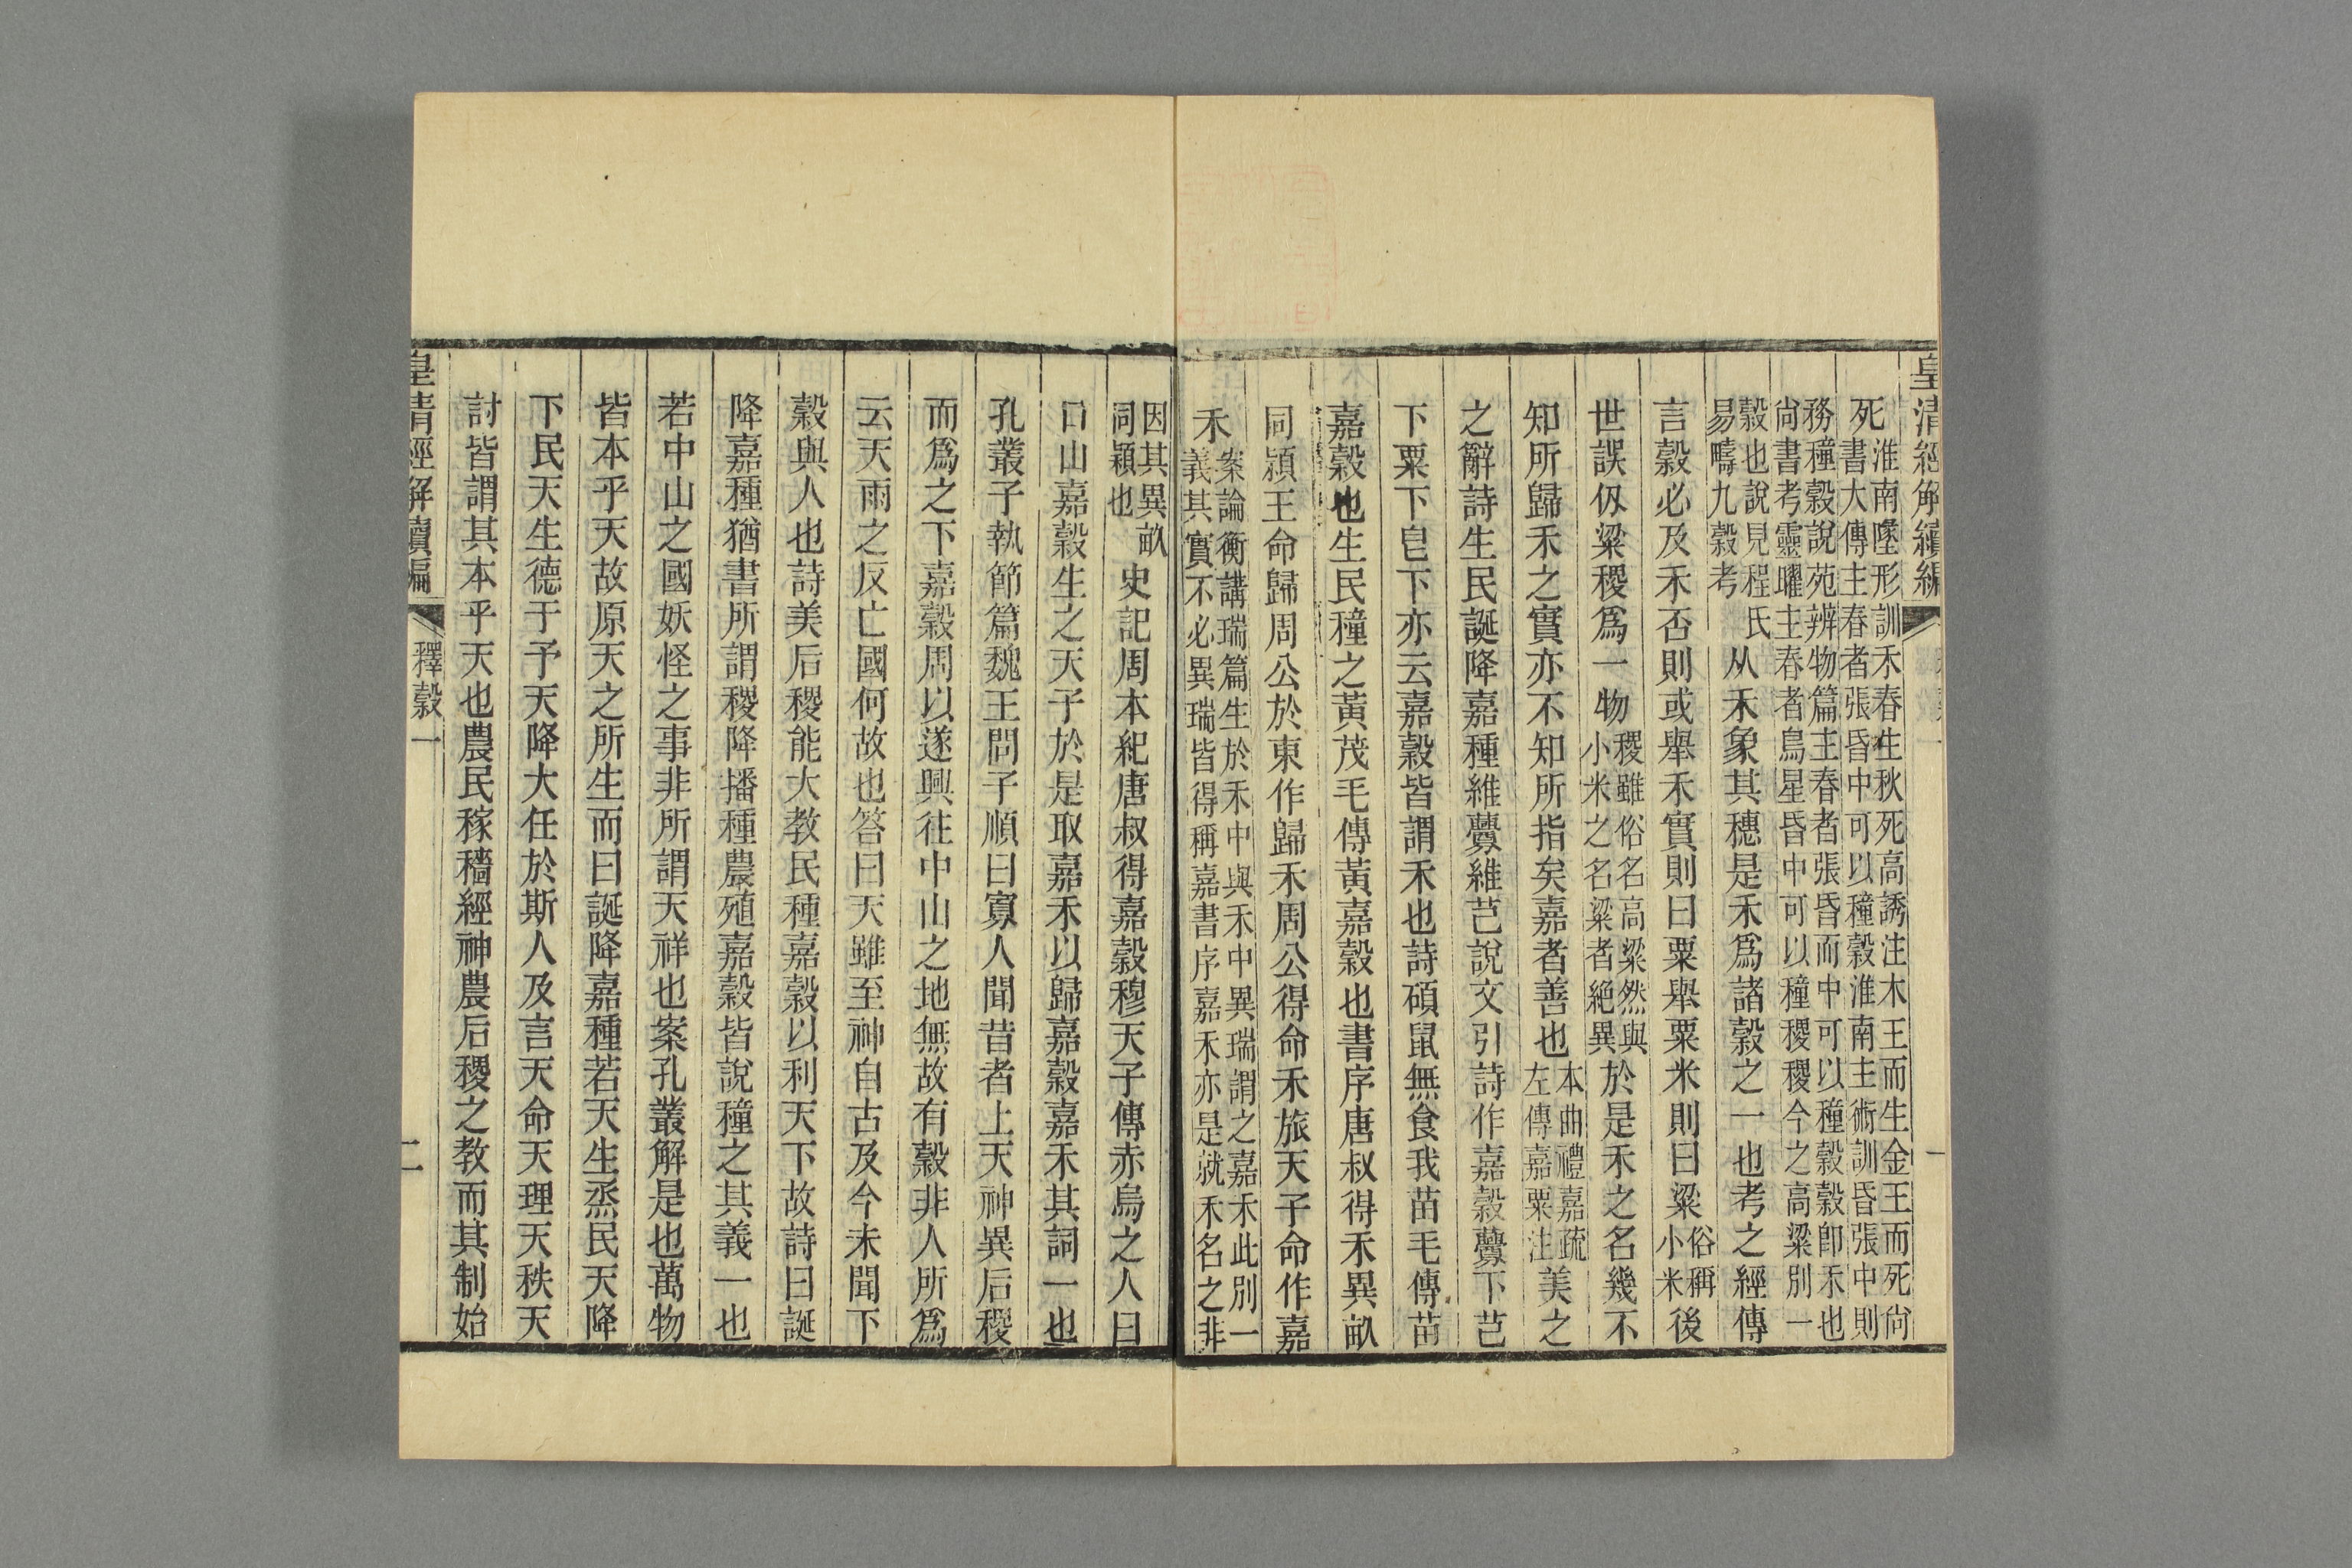 皇清經解續編
一
死淮南墬形訓禾春生秋死高誘注木王而生金王而死尙
書大傳主春者張昏中可以穜穀淮南主術訓昏張中則
務穜穀說苑辨物篇主春者張昏而中可以穜穀穀卽禾也
尙書考靈曜主春者鳥星昏中可以穜稷稷今之高粱別一
穀也說見程氏
易疇九穀考
从禾象其穗是禾爲諸穀之一也考之經傳
言穀必及禾否則或舉禾實則曰粟舉粟米則曰粱俗稱
小米
後
世誤仞粱稷爲一物稷雖俗名高粱然與
小米之名粱者絕異
於是禾之名幾不
知所歸禾之實亦不知所指矣嘉者善也本曲禮嘉疏
左傳嘉粟注
美之
之辭詩生民誕降嘉種維虋維芑說文引詩作嘉穀虋下芑
下粟下皀下亦云嘉穀皆謂禾也詩碩鼠無食我苗毛傳苗
嘉穀也生民穜之黃茂毛傳黃嘉穀也書序唐叔得禾異畝
同穎王命歸周公於東作歸禾周公得命禾旅天子命作嘉
禾案論衡講瑞篇生於禾中與禾中異瑞謂之嘉禾此別一
義其實不必異瑞皆得稱嘉書序嘉禾亦是就禾名之非
因其異畝
同穎也
史記周本紀唐叔得嘉穀穆天子傳赤烏之人曰
口山嘉穀生之天子於是取嘉禾以歸嘉穀嘉禾其詞一也
孔叢子執節篇魏王問子順曰寡人聞昔者上天神異后稷
而爲之下嘉穀周以遂興往中山之地無故有穀非人所爲
云天雨之反亡國何故也答曰天雖至神自古及今未聞下
穀與人也詩美后稷能大教民種嘉穀以利天下故詩曰誕
降嘉種猶書所謂稷降播種農殖嘉穀皆說穜之其義一也
若中山之國妖怪之事非所謂天祥也案孔叢解是也萬物
皆本乎天故原天之所生而曰誕降嘉種若天生烝民天降
下民天生德于予天降大任於斯人及言天命天理天秩天
討皆謂其本乎天也農民稼穡經神農后稷之教而其制始
皇清經解續編
釋穀一
二